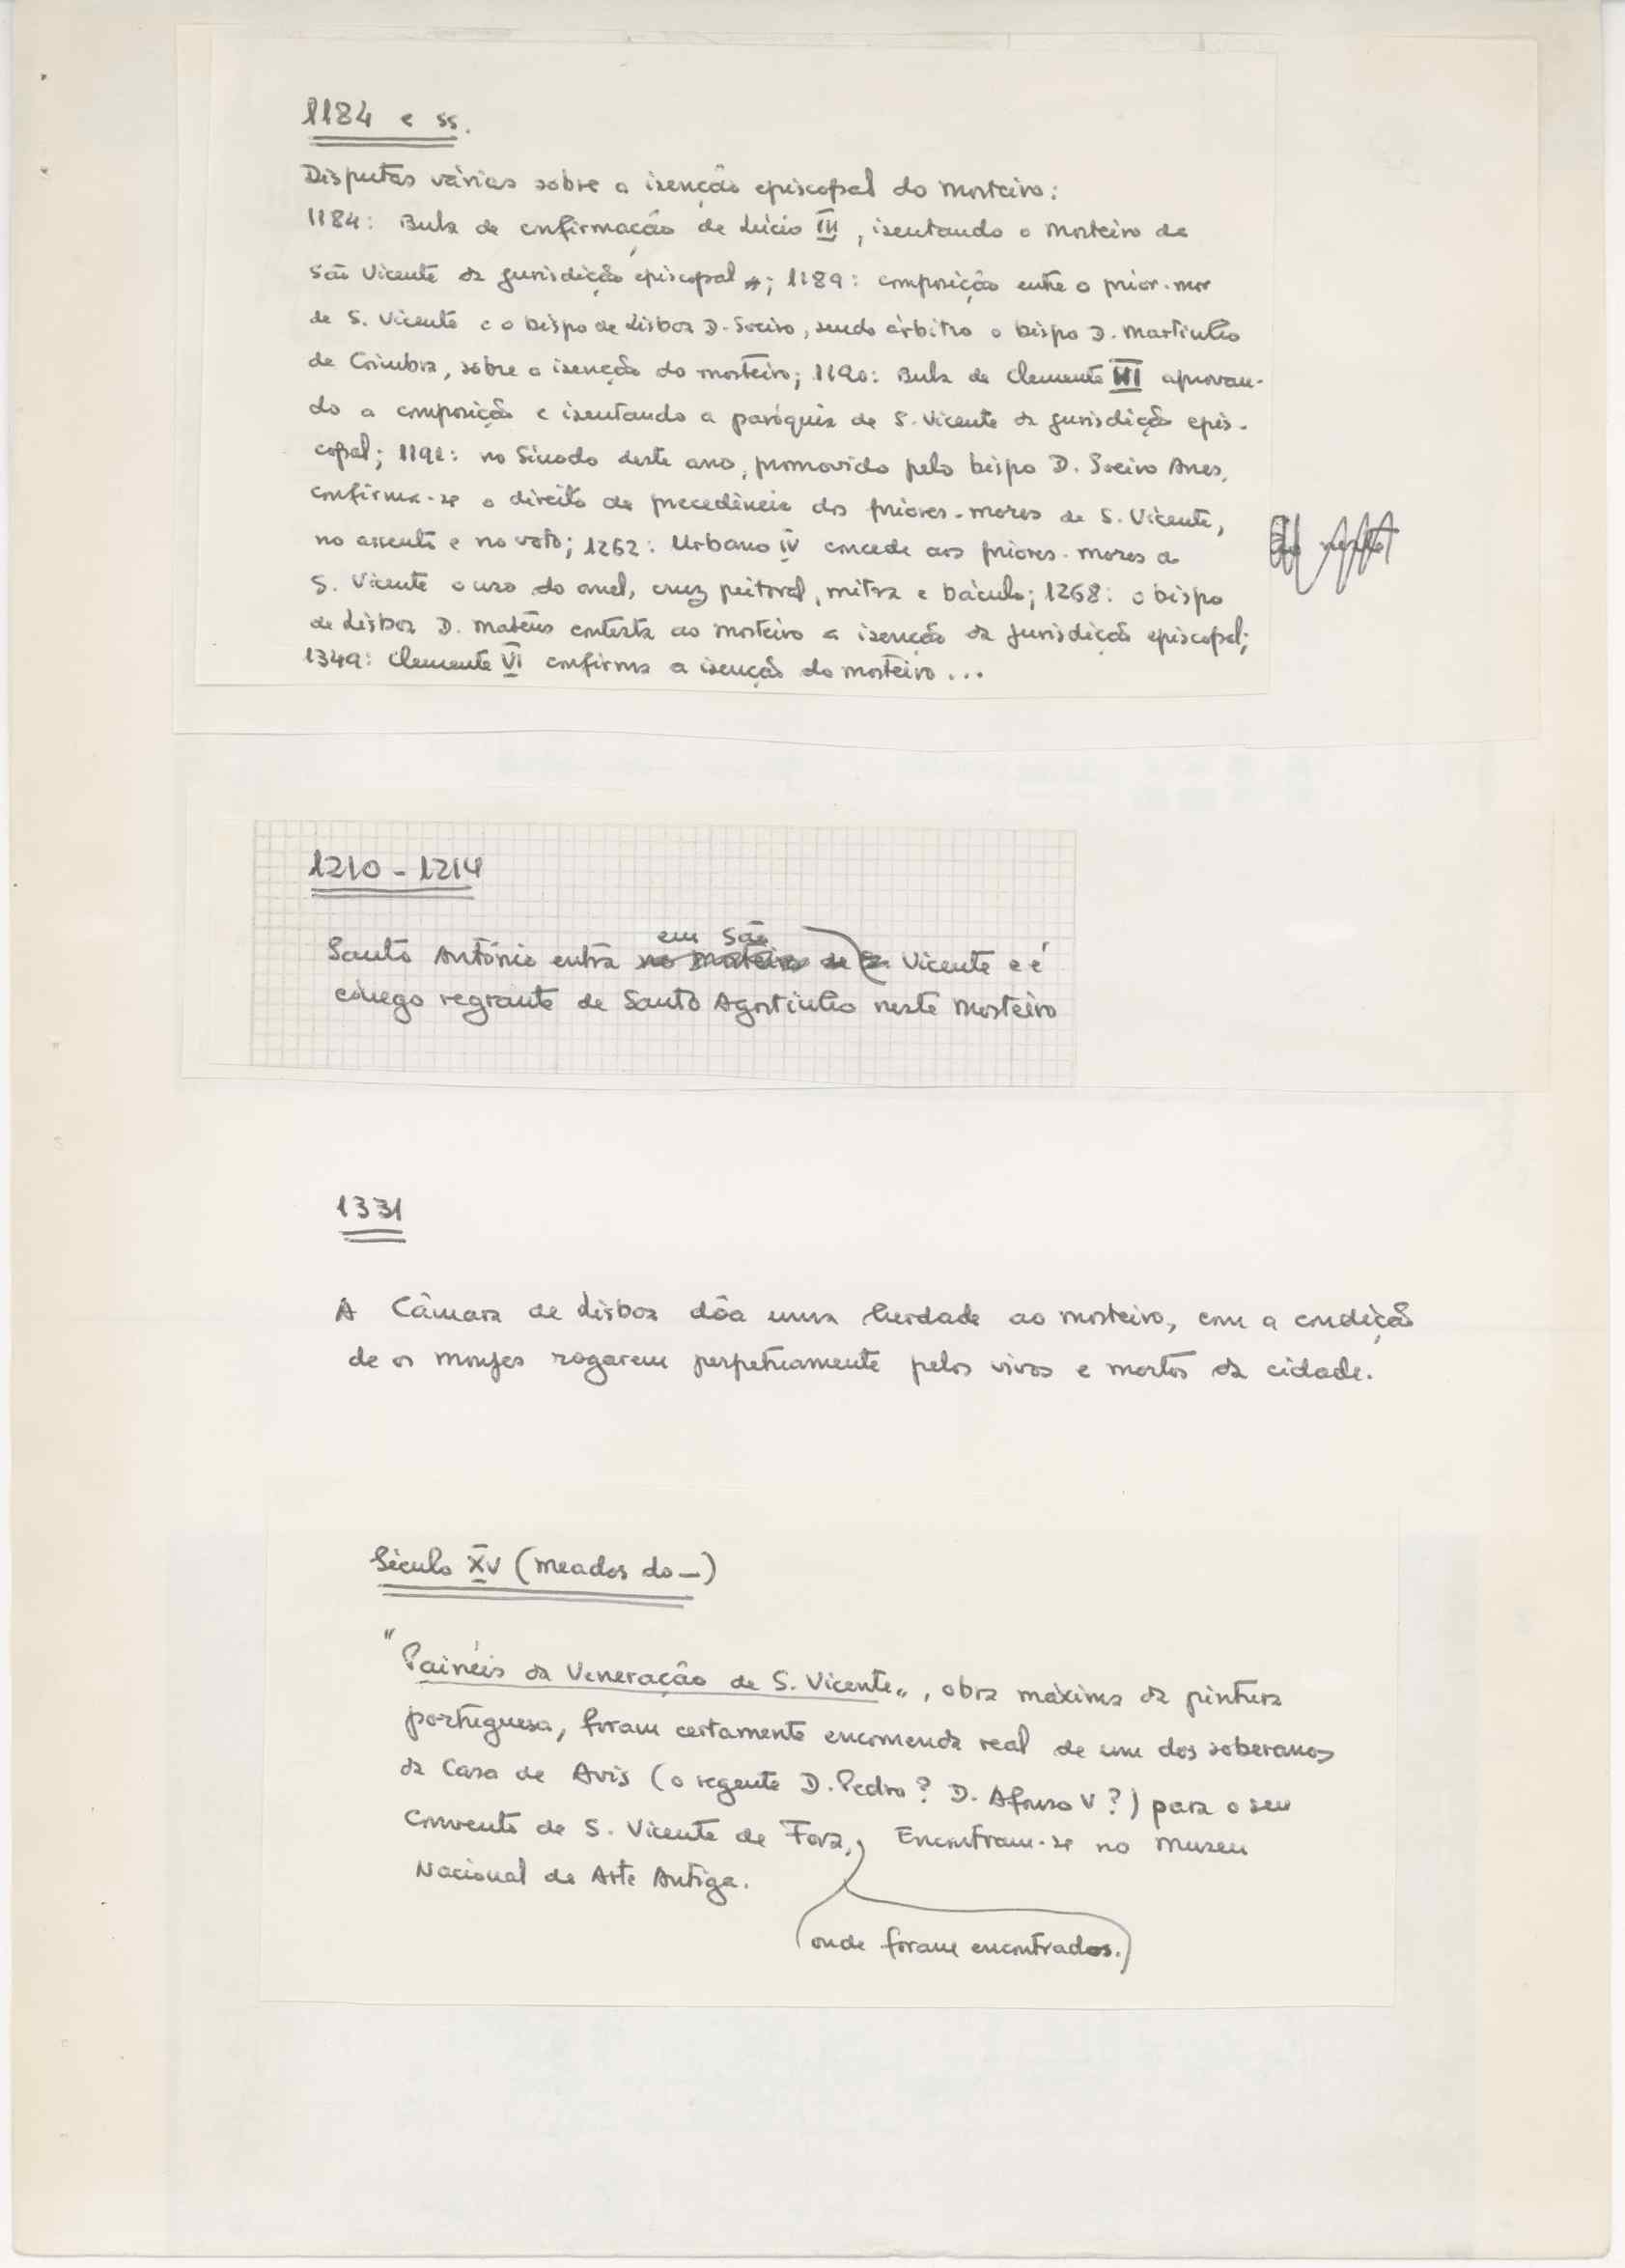 1184 e ss.
Disputas várias sobre a isenção episcopal do mosteiro:
1184: Bula de confirmação de Lúcio III, isentando o mosteiro de
São Vicente da jurisdição episcopal; 1189: composição entre o prior-mor
de S. Vicente e o bispo de Lisboa D. Soeiro, sendo árbitro o bispo D. Martinho
de Coimbra, sobre a isenção do mosteiro; 1190: Bula de Clemente III aprovan-
do a composição e isentando a paróquia de S. Vicente da jurisdição epis-
copal; 1191: no Sínodo deste ano, promovido pelo bispo D. Soeiro Anes,
confirma-se o direito de precedência dos priores-mores de S. Vicente,
no assento e no voto; 1262: Urbano IV concede aos priores-mores de
S. Vicente o uso do anel, cruz peitoral, mitra e báculo; 1268: o bispo
de Lisboa D. Mateus contesta ao mosteiro a isenção da jurisdição episcopal;
1349: Clemente VI confirma a isenção do mosteiro...
1210 - 1214
em São
Santo António entra no mosteiro de S. Vicente e é
cónego regrante de Santo Agostinho neste mosteiro
1331
A Câmara de Lisboa dôa uma herdade ao mosteiro, com a condição
de os monjes rogarem perpetuamente pelos vivos e mortos da cidade.
Século XV (meados do –)
"Painéis da Veneração de S. Vicente", obra máxima da pintura
portuguesa, foram certamente encomenda real de um dos soberanos
da Casa de Avis (o regente D. Pedro? D. Afonso V?) para o seu
Convento de S. Vicente de Fora, Encontram-se no Museu
Nacional de Arte Antiga.
onde foram encontrados.